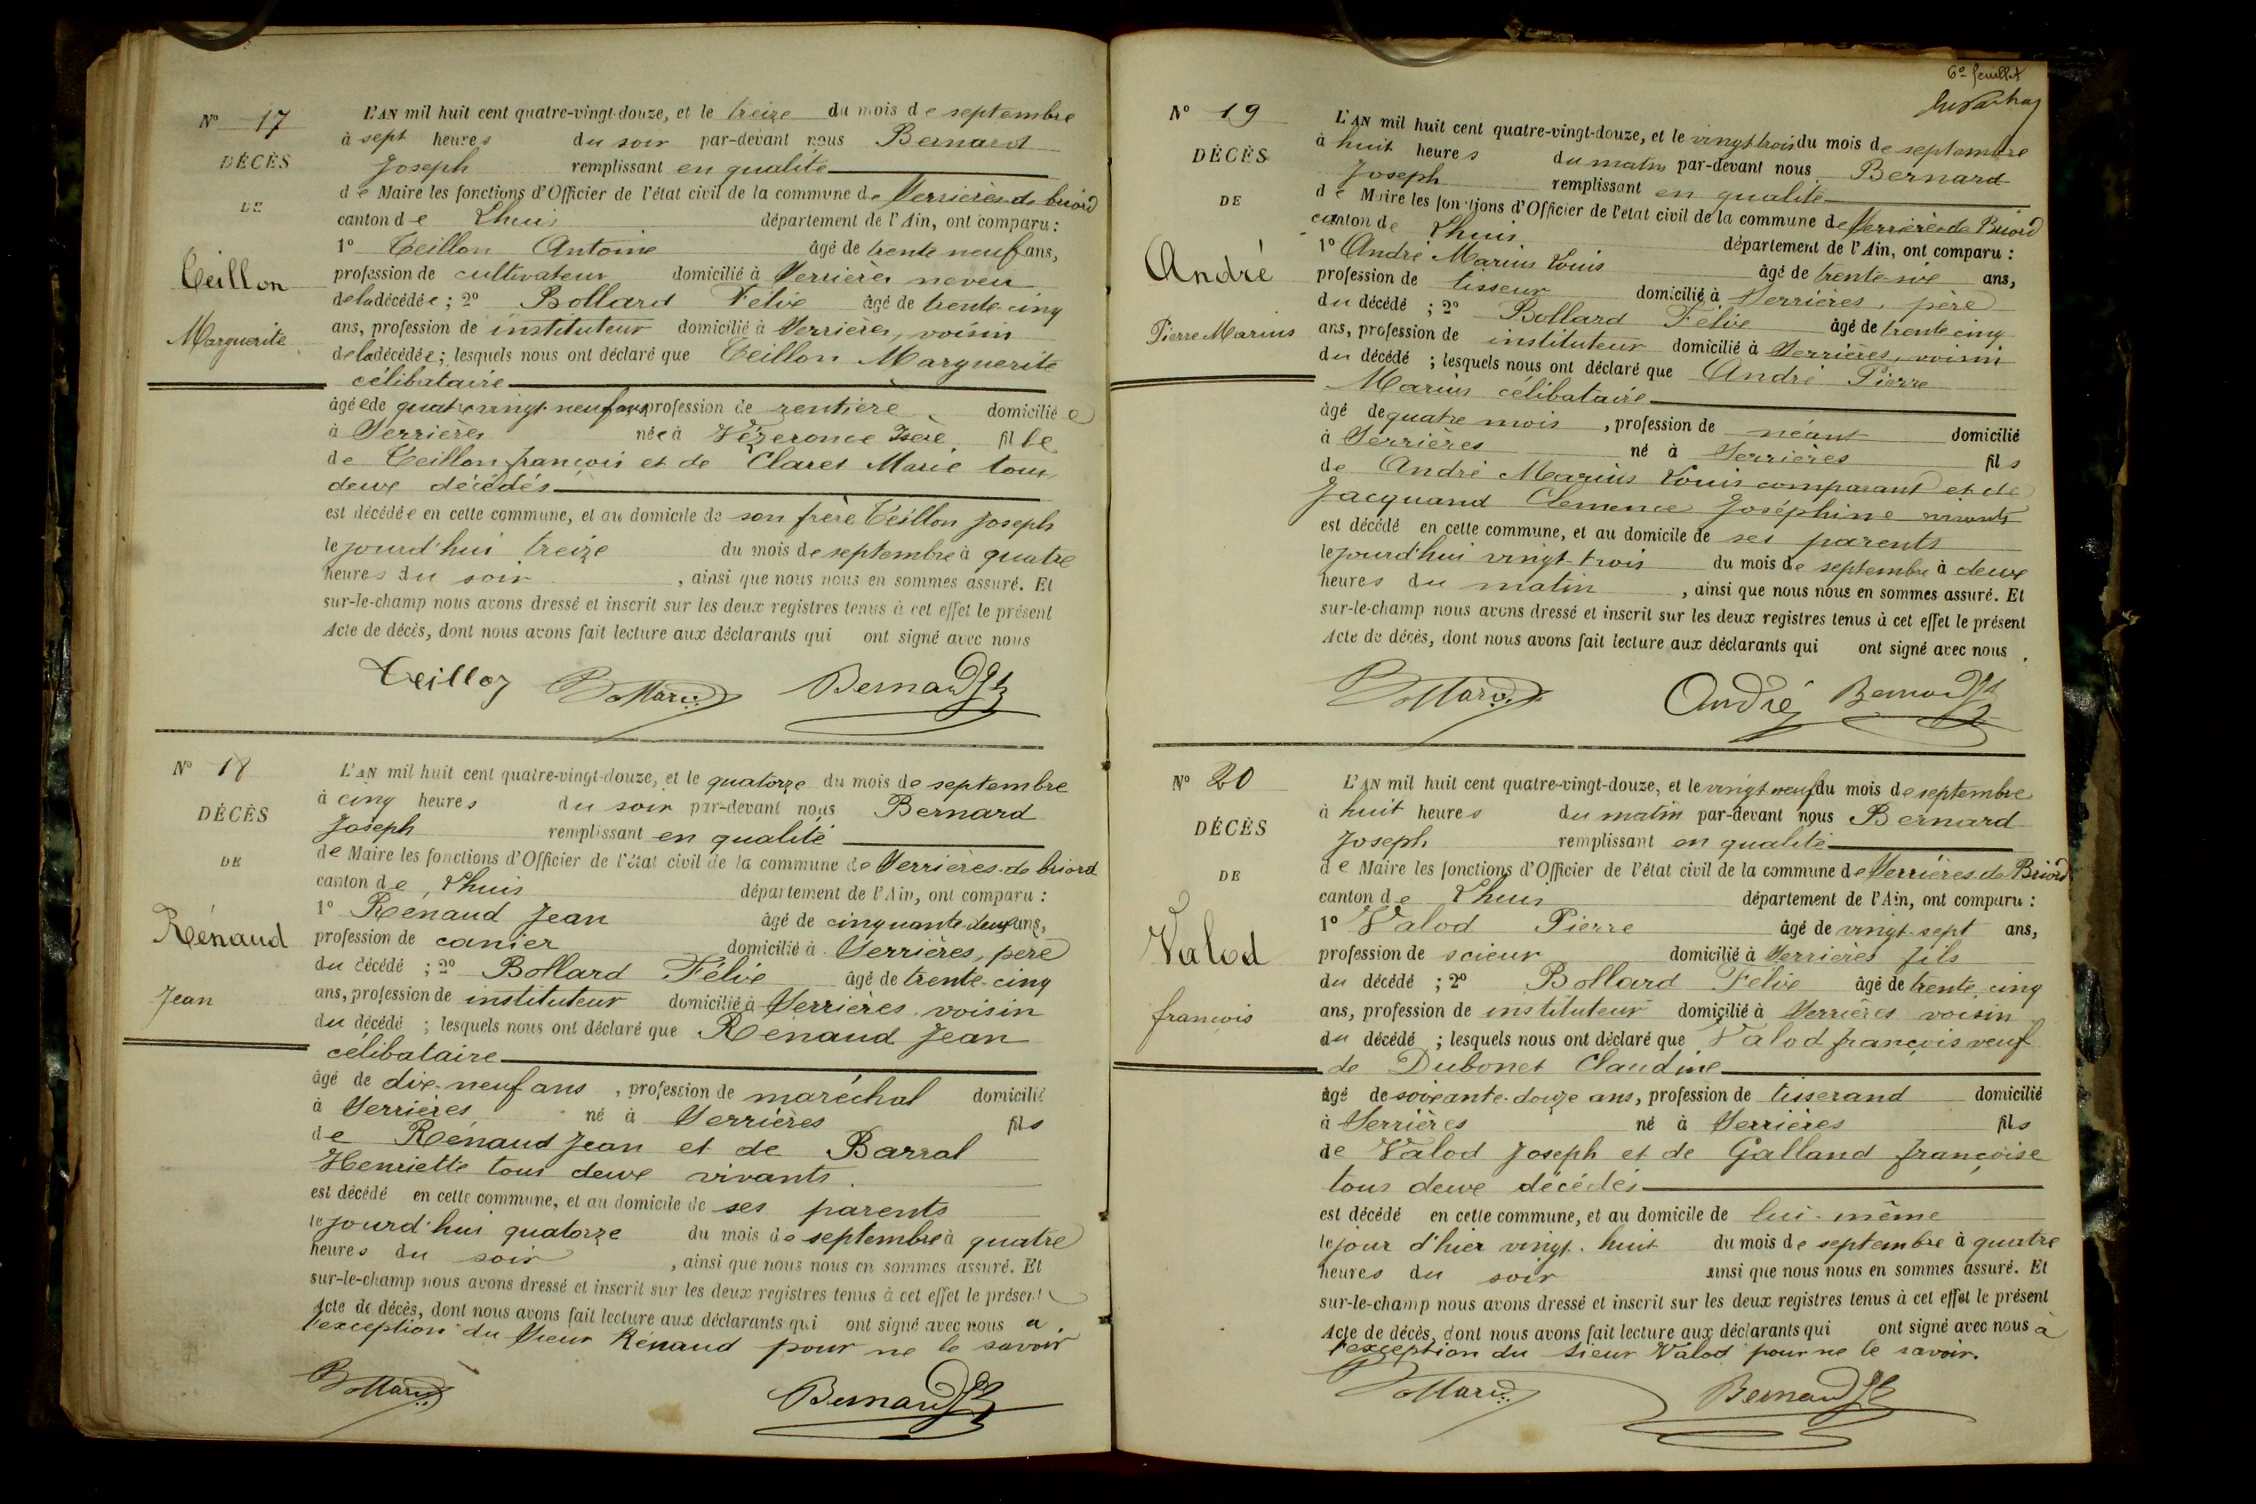 Nº 17
DÉCÈS
DE
Teillon
Marguerite
L'AN mil huit cent quatre-vingt-douze, et le treize du mois de septembre
à sept heures du soir par-devant nous Bernard
Joseph remplissant en qualité
de Maire les fonctions d'Officier de l'état civil de la commune de Serrières de briord
canton de Lhuis département de l'Ain, ont comparu :
1º Teillon Antoine âgé de trente neuf ans,
profession de cultivateur domicilié à Serrières neveu
de la décédée ; 2º Bollard Félix âgé de trente-cinq
ans, profession de instituteur domicilié à Serrières, voisin
de la décédée ; lesquels nous ont déclaré que Teillon Marguerite
célibataire
âgée de quatre vingt neuf ans profession de rentière domiciliée
à Serrières née à Vézeronce Isère fille
de Teillon françois et de Claret Marie tous
deux décédés
est décédée en cette commune, et au domicile de son frère Teillon Joseph
le jourd'hui treize du mois de septembre à quatre
heures du soir , ainsi que nous nous en sommes assuré. Et
sur-le-champ nous avons dressé et inscrit sur les deux registres tenus à cet effet le présent
Acte de décès, dont nous avons fait lecture aux déclarants qui ont signé avec nous
Teillon Bollard Bernard
Nº 18
DÉCÈS
DE
Rénaud
Jean
L'AN mil huit cent quatre-vingt-douze, et le quatorze du mois de septembre
à cinq heures du soir par-devant nous Bernard
Joseph remplissant en qualité
de Maire les fonctions d'Officier de l'état civil de la commune de Serrières-de briord
canton de Lhuis département de l'Ain, ont comparu :
1º Rénaud Jean âgé de cinquante deux ans,
profession de canier domicilié à Serrières, père
du décédé ; 2º Bollard Félix âgé de trente-cinq
ans, profession de instituteur domicilié à Serrières voisin
du décédé ; lesquels nous ont déclaré que Rénaud Jean
célibataire
âgé de dix-neuf ans , profession de maréchal domicilié
à Serrières né à Serrières fils
de Rénaud Jean et de Barral
Henriette tous deux vivants.
est décédé en cette commune, et au domicile de ses parents
le jourd'hui quatorze du mois de septembre à quatre
heures du soir , ainsi que nous nous en sommes assuré. Et
sur-le-champ nous avons dressé et inscrit sur les deux registres tenus à cet effet le présent
Acte de décès, dont nous avons fait lecture aux déclarants qui ont signé avec nous a
l'exception du Sieur Rénaud pour ne le savoir
Bollard Bernard
6º feuillet
Nº 19
DÉCÈS
DE
André
Pierre Marius
L'AN mil huit cent quatre-vingt-douze, et le vingt trois du mois de septembre
à huit heures du matin par-devant nous Bernard
Joseph remplissant en qualité
de Maire les fonctions d'Officier de l'état civil de la commune de Serrières de Briord
canton de Lhuis département de l'Ain, ont comparu :
1º André Marius Louis âgé de trente-six ans,
profession de tisseur domicilié à Serrières, père
du décédé ; 2º Bollard Félix âgé de trente cinq
ans, profession de instituteur domicilié à Serrières, voisin
du décédé ; lesquels nous ont déclaré que André Pierre
Marius célibataire
âgé de quatre mois , profession de néant domicilié
à Serrières né à Serrières fils
de André Marius Louis comparant et de
Jacquand Clemence Joséphine vivants
est décédé en cette commune, et au domicile de ses parents
le jourd'hui vingt-trois du mois de septembre à deux
heures du matin , ainsi que nous nous en sommes assuré. Et
sur-le-champ nous avons dressé et inscrit sur les deux registres tenus à cet effet le présent
Acte de décès, dont nous avons fait lecture aux déclarants qui ont signé avec nous.
Bollard André Bernard
Nº 20
DÉCÈS
DE
Valod
françois
L'AN mil huit cent quatre-vingt-douze, et le vingt neuf du mois de septembre
à huit heures du matin par-devant nous Bernard
Joseph remplissant en qualité
de Maire les fonctions d'Officier de l'état civil de la commune de Serrières de Briord
canton de Lhuis département de l'Ain, ont comparu :
1º Valod Pierre âgé de vingt-sept ans,
profession de scieur domicilié à Serrières fils
du décédé ; 2º Bollard Félix âgé de trente cinq
ans, profession de instituteur domicilié à Serrières voisin
du décédé ; lesquels nous ont déclaré que Valod françois veuf
de Dubonet Claudine
âgé de soixante-douze ans, profession de tisserand domicilié
à Serrières né à Serrières fils
de Valod Joseph et de Galland françoise
tous deux décédés
est décédé en cette commune, et au domicile de lui-même
le jour d'hier vingt-huit du mois de septembre à quatre
heures du soir ainsi que nous nous en sommes assuré. Et
sur-le-champ nous avons dressé et inscrit sur les deux registres tenus à cet effet le présent
Acte de décès, dont nous avons fait lecture aux déclarants qui ont signé avec nous à
l'exception du sieur Valod pour ne le savoir.
Bollard Bernard